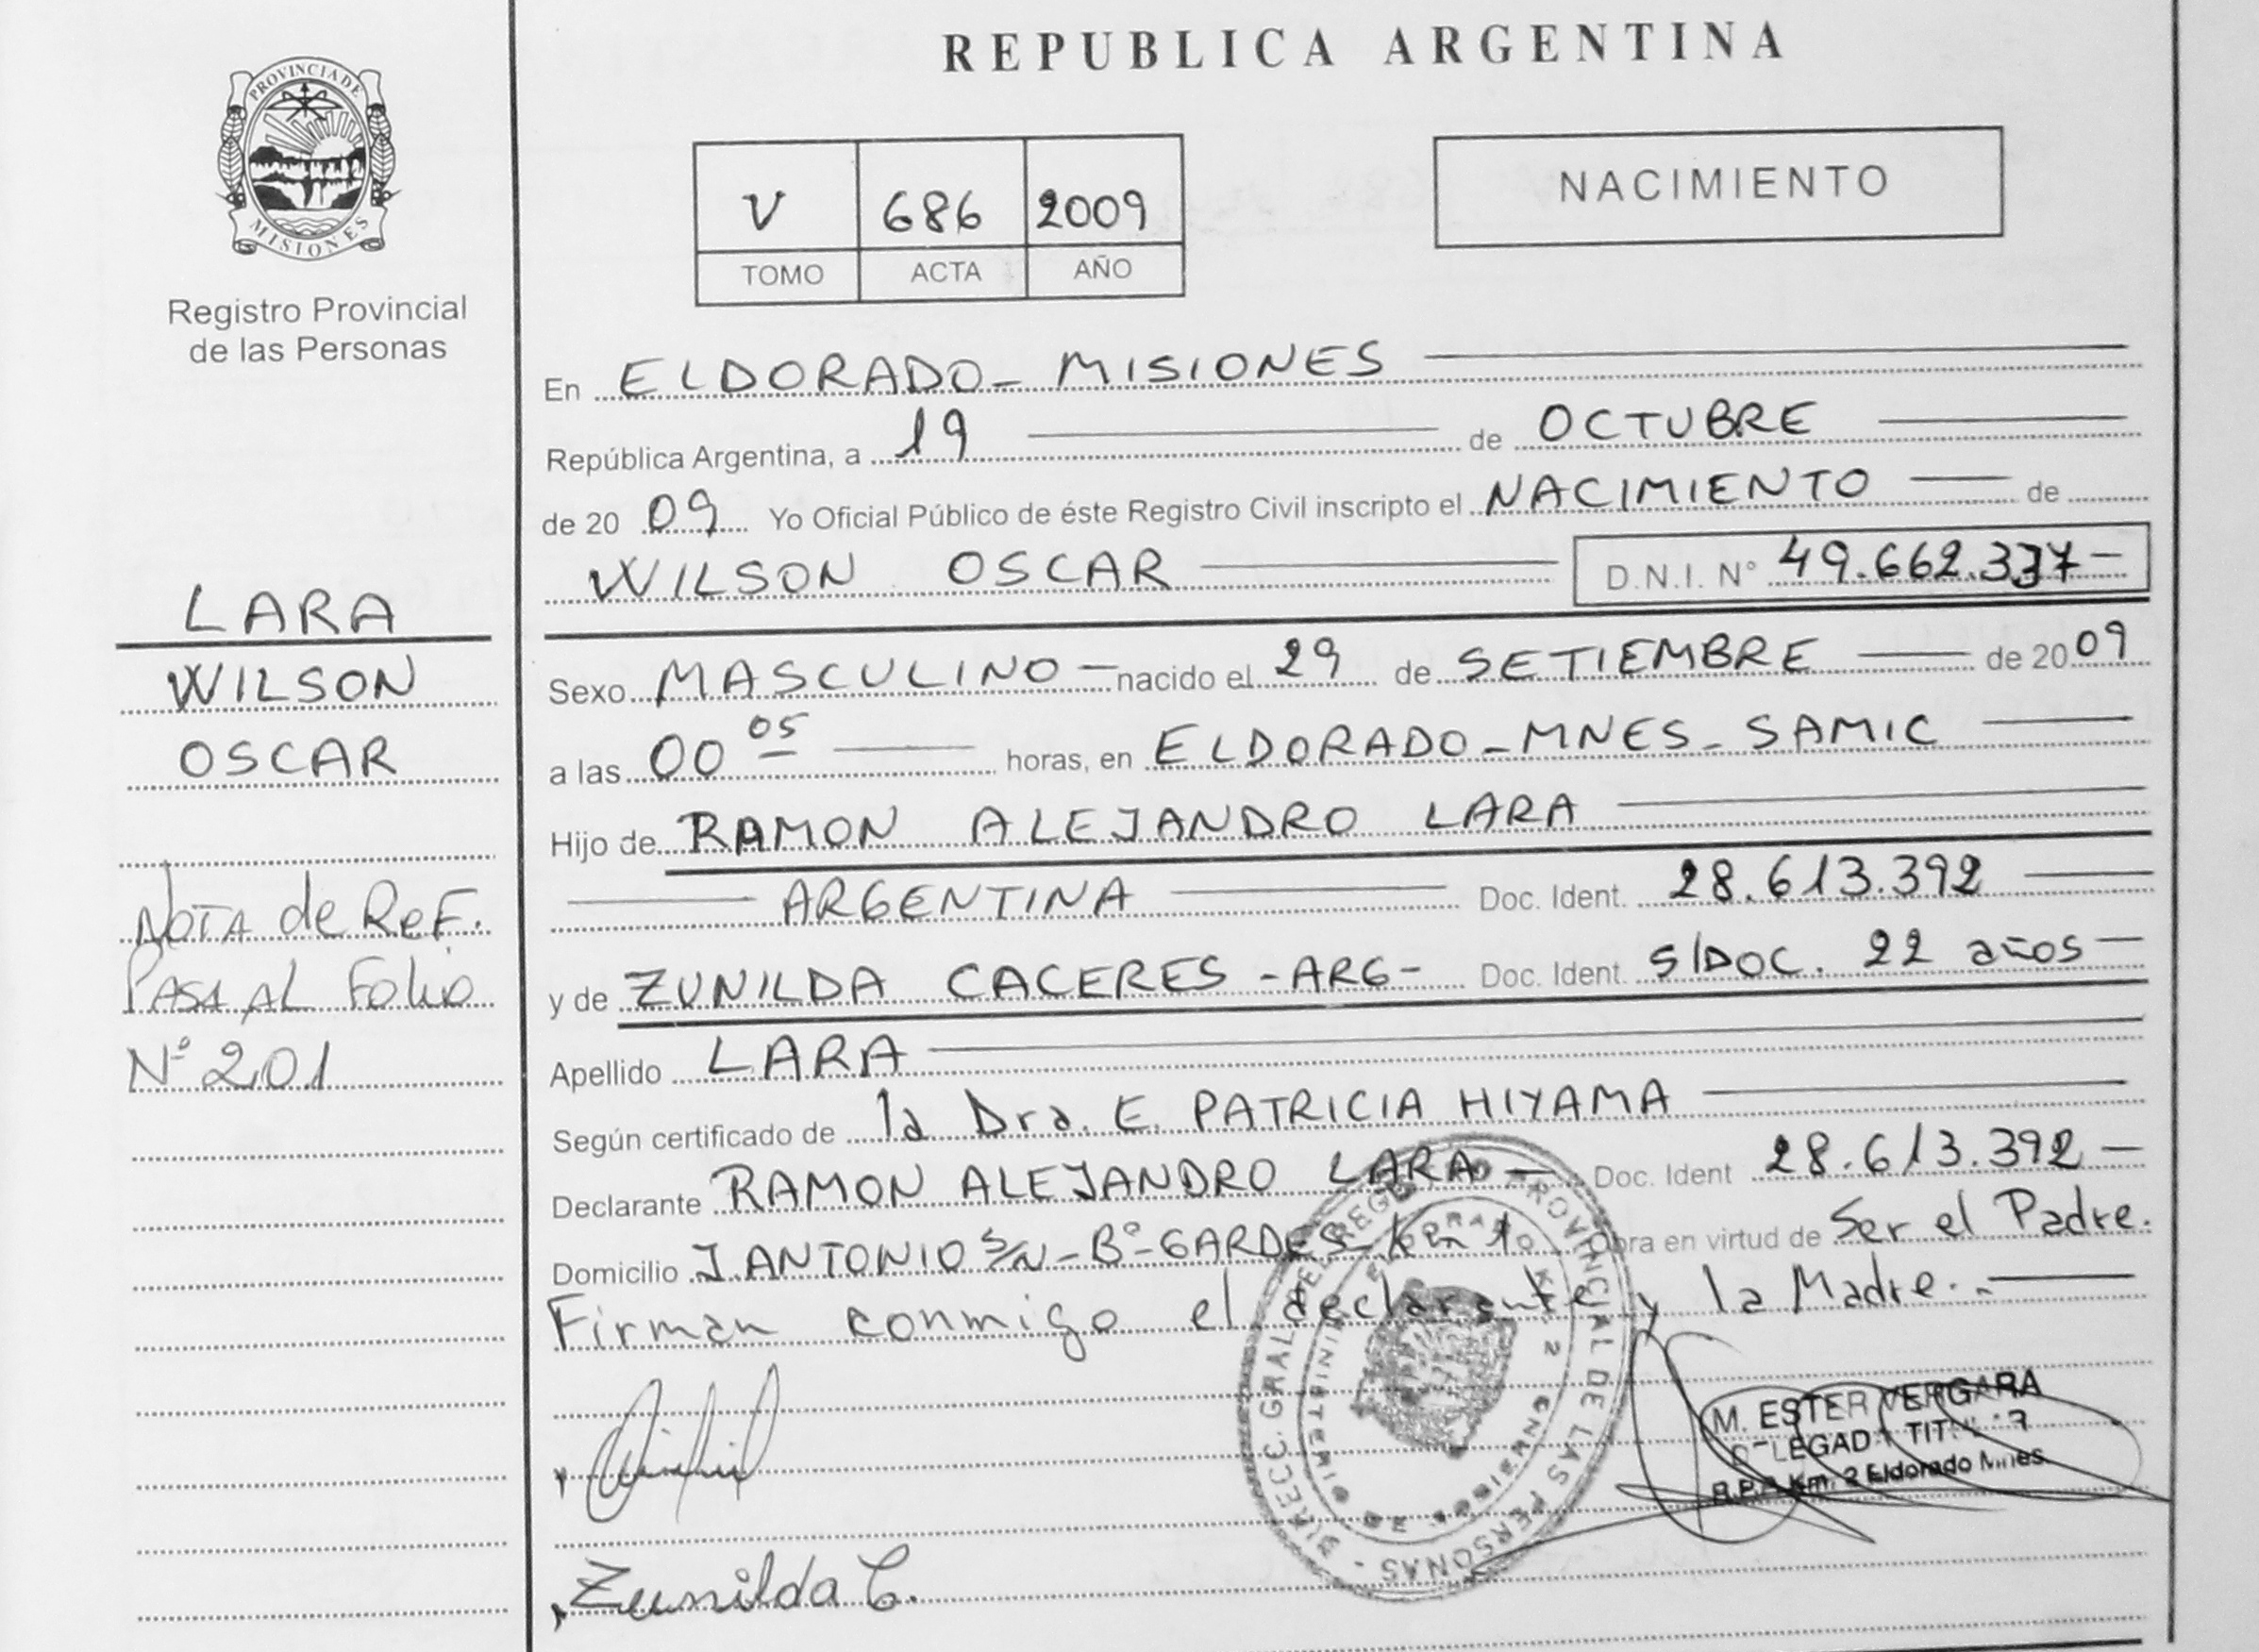 REPUBLICA ARGENTINA
PROVINCIA DE
MISIONES
Registro Provincial
de las Personas
V 686 2009
TOMO ACTA AÑO
NACIMIENTO
En ELDORADO - MISIONES
República Argentina, a 19 de OCTUBRE
de 20 09 Yo Oficial Público de éste Registro Civil inscripto el NACIMIENTO de
WILSON OSCAR D.N.I. N° 49.662.337-
LARA
WILSON
OSCAR
NOTA de Ref.
PASA AL Folio
N° 201
Sexo MASCULINO - nacido el 29 de SETIEMBRE de 20 09
a las 00 05 horas, en ELDORADO - MNES - SAMIC
Hijo de RAMON ALEJANDRO LARA
ARGENTINA Doc. Ident. 28.613.392
y de ZUNILDA CACERES - ARG - Doc. Ident. S/DOC. 22 años
Apellido LARA
Según certificado de la Dra. E. PATRICIA HIYAMA
Declarante RAMON ALEJANDRO LARA - Doc. Ident 28.613.392 -
Domicilio J. ANTONIO S/N - B° - GARDES Km 1 Obra en virtud de Ser el Padre.
Firman conmigo el declarante y la Madre.-
DIRECC. GRAL. DEL REGISTRO PROVINCIAL DE LAS PERSONAS
M. ESTER VERGARA
R.P.P. Km. 2 Eldorado Mnes.
Zunilda C.